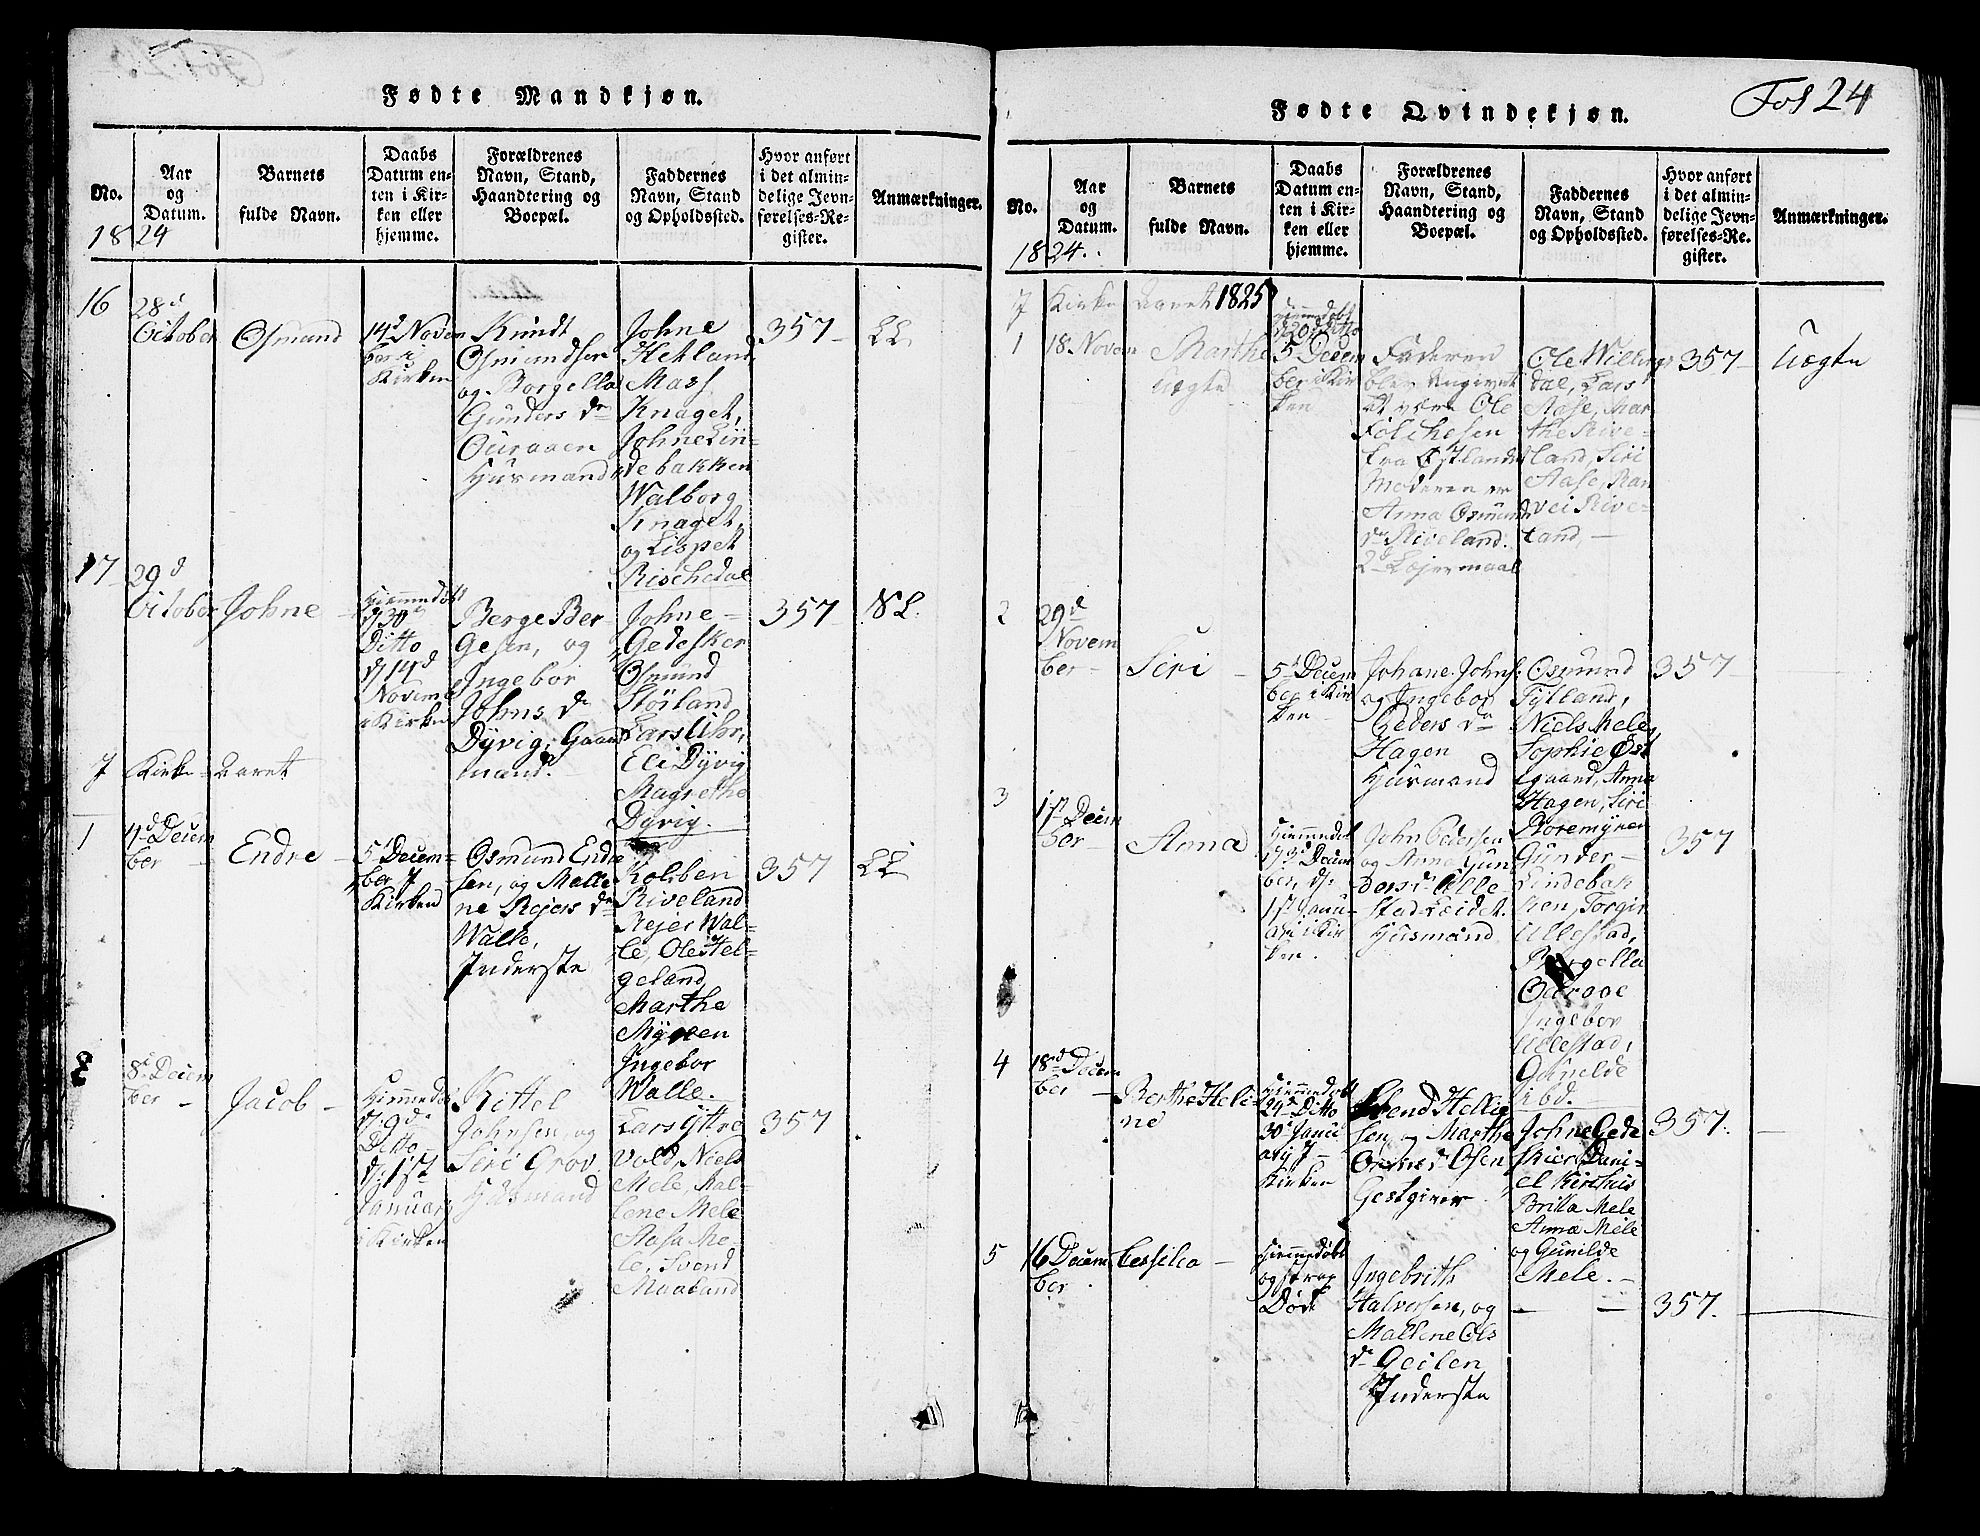 Fødte Mandkjøn.
No.
Aar
og
Datum.
Barnets
fulde Navn.
Daabs
Datum en-
ten i Kir-
ken eller
hjemme.
Forældrenes
Navn, Stand,
Haandtering og
Boepæl.
Faddernes
Navn, Stand
og Opholdssted.
Hvor anført
i det almin-
delige Jevn-
førelses-Re-
gister.
Anmærkninger.
1824
16
28d
October
Osmund
14d Novem
ber i
Kirken
Knudt
Osmundsen
og Borgella
Gunders Dr
Ouraaen
Huusmand
Johne
Hetland
Mass
Knaget,
Johne Lin-
debakken
Walborg
Knaget,
og Lispet
Rischedal
357
LL
17
29d
October
Johne
Hiemmedøbt
d 30d
Ditto
d 14d
Novemb
i Kirken
Berge Ber-
gesen, og
Ingebor
Johns Dr
Dyvig, Gaard
mand.
Johne
Gedesker
Osmund
Støiland
Lars Uhr,
Eli Dyvig
Magrethe
Dyvig.
357
NL.
I Kirke-Aaret
1
4d Decem
ber
Endre
5d Decem-
ber I
Kirken
Osmund Endre
sen, og Malle
ne Rejers Dr
Walle,
Inderste
Kolben
Riveland
Rejer Wal-
le, Ole Hel-
geland
Marthe
Myren
Ingebor
Walle.
357
LL
2
8d Decem
ber
Jacob
Hiemmedøbt
d. 9d
Ditto
d. 1st
Januarj
i Kirken
Kittel
Johnsen, og
Siri Grov
Huusmand
Lars Yttre
vold, Niels
Mele, Mal-
lene Mele
Aasa Me-
le, Svend
Maaland
357
Fødte Qvindekjøn.
Fol 24
No.
Aar
og
Datum.
Barnets
fulde Navn.
Daabs
Datum en-
ten i Kir-
ken eller
hjemme.
Forældrenes
Navn, Stand,
Haandtering og
Boepæl.
Faddernes
Navn, Stand
og Opholdssted.
Hvor anført
i det almin-
delige Jevn-
førelses-Re-
gister.
Anmærkninger.
1824.
I Kirke Aaret 1825
1
18 Novem
Marthe
Uægte
Hiemmedøbt
d 20d Ditto
5 Decem
ber i Kir
ken
Faderen
blev Angivet
at være Ole
Folchesen
fra Østlandet
Moderen er
Anna Osmund
Dr Riveland.
2d Lejermaal
Ole Wilings
dal, Lars
Aase, Mar
the Rive-
land, Siri
Aase, Ran
vei Rive-
land,
357
Uægte
2
29d
Novem
ber
Siri
5d Decem
ber i Kir
ken
Johane Johns:
og Ingebor
Peders Dr
Hagen
Huusmand
Osmund
Tylland,
Niels Mele,
Sophie Øst
gaard, Anna
Hagen, Siri
Roremyren
357
3
1st Decem
ber
Anna
Hiemmedøbt
d 3d Decem
ber, d.
1st Janu-
arj i Kir
ken.
John Pedersen
og Anna Gun
ders Dr Ulle
stad Leidet.
Huusmand
Gunder
Lindebak
ken, Torgir
Ullestad,
Borgella
Ouraae
Ingebor
Ullestad,
Gunilde
ibd.
357
4
18d Decem
ber
Berthe Heli-
ne
Hiemmedøbt
24d Ditto
30d Janu
arij I
Kirken
Svend Hellig
sen og Marthe
Orms Dr Osen
Gestgiver
Johne Gede
skier, Dani-
el Kirchus
Britta Mele
Anna Mele
og Gunilde
Mele.
357.
5
16 Decem
ber
Cessilia
Hiemmedøbt
og strax
Død
Ingebrith
Halversen, og
Mallene Ols
Dr Geilen
Inderste
357.